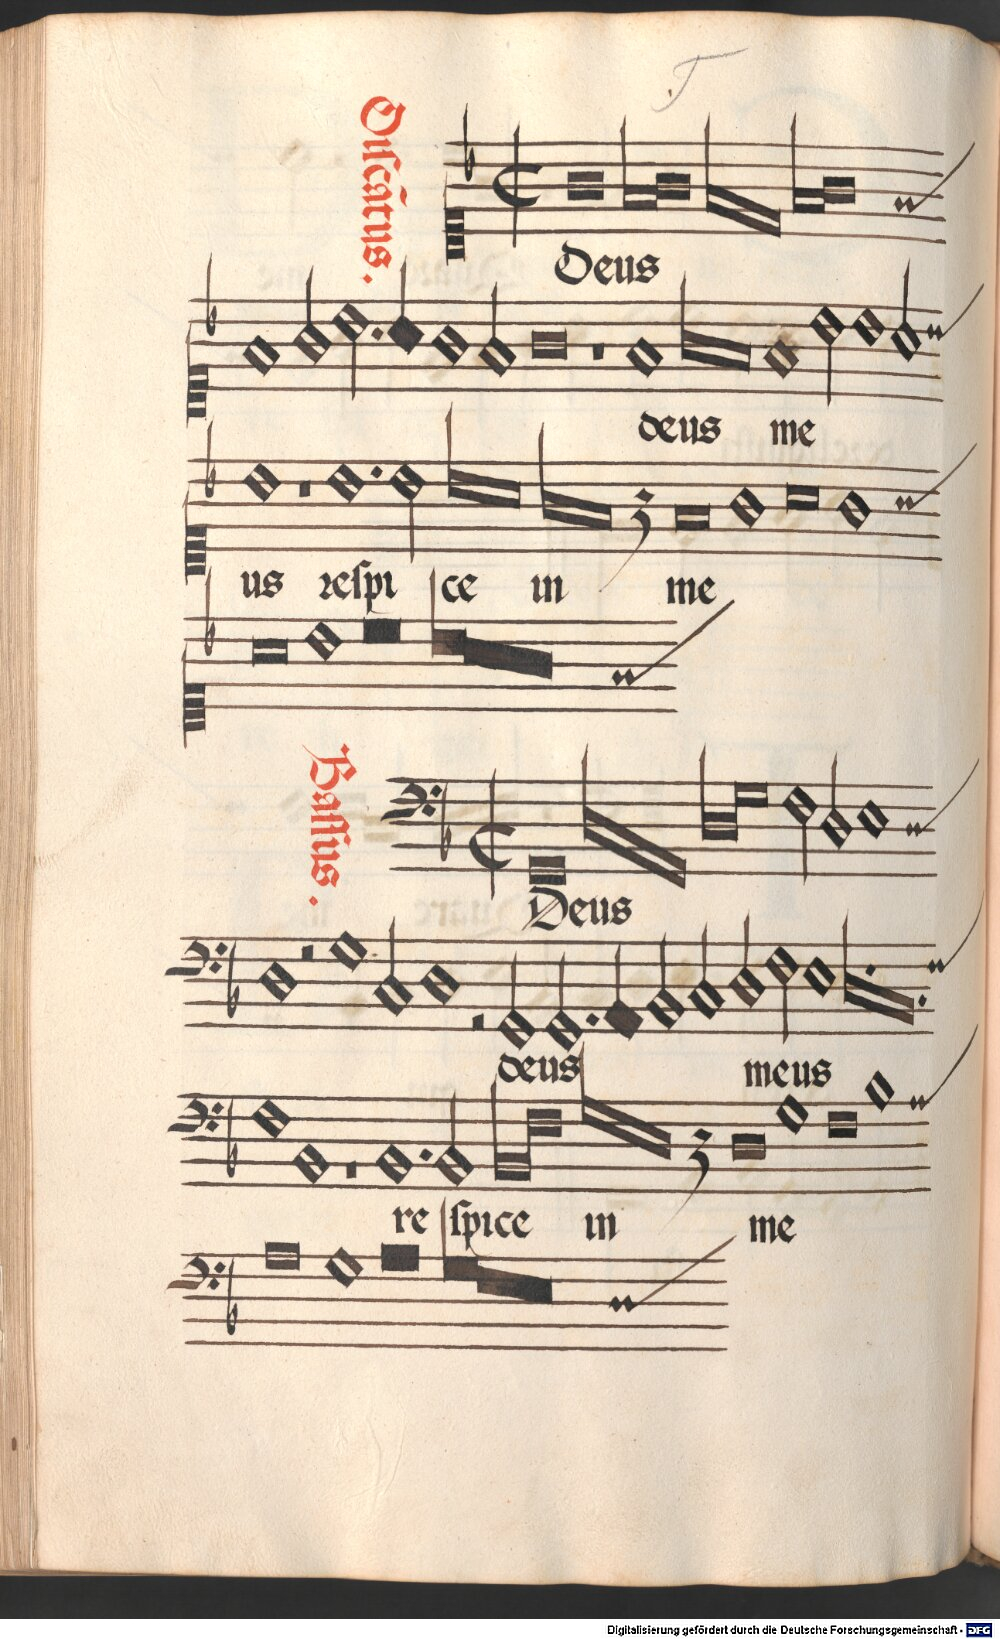 T
Discātus.
Deus
deus me
us respi ce in me
Bassus.
Deus
deus meus
re spice in me
Digitalisierung gefördert durch die Deutsche Forschungsgemeinschaft - DFG